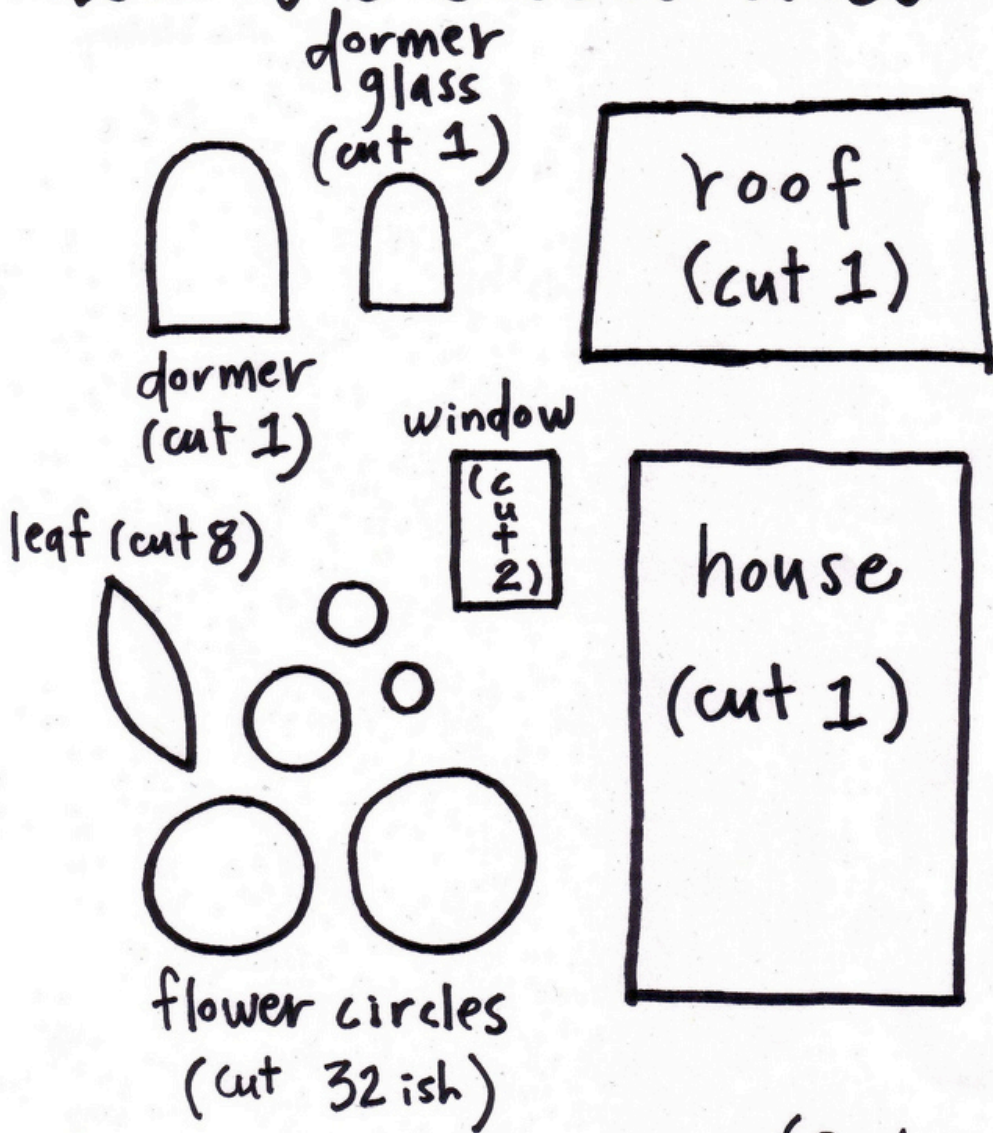 dormer
glass
(cut 1)
roof
(cut 1)
dormer
(cut 1)
window
(cut 2)
leaf (cut 8)
house
(cut 1)
flower circles
(cut 32 ish)